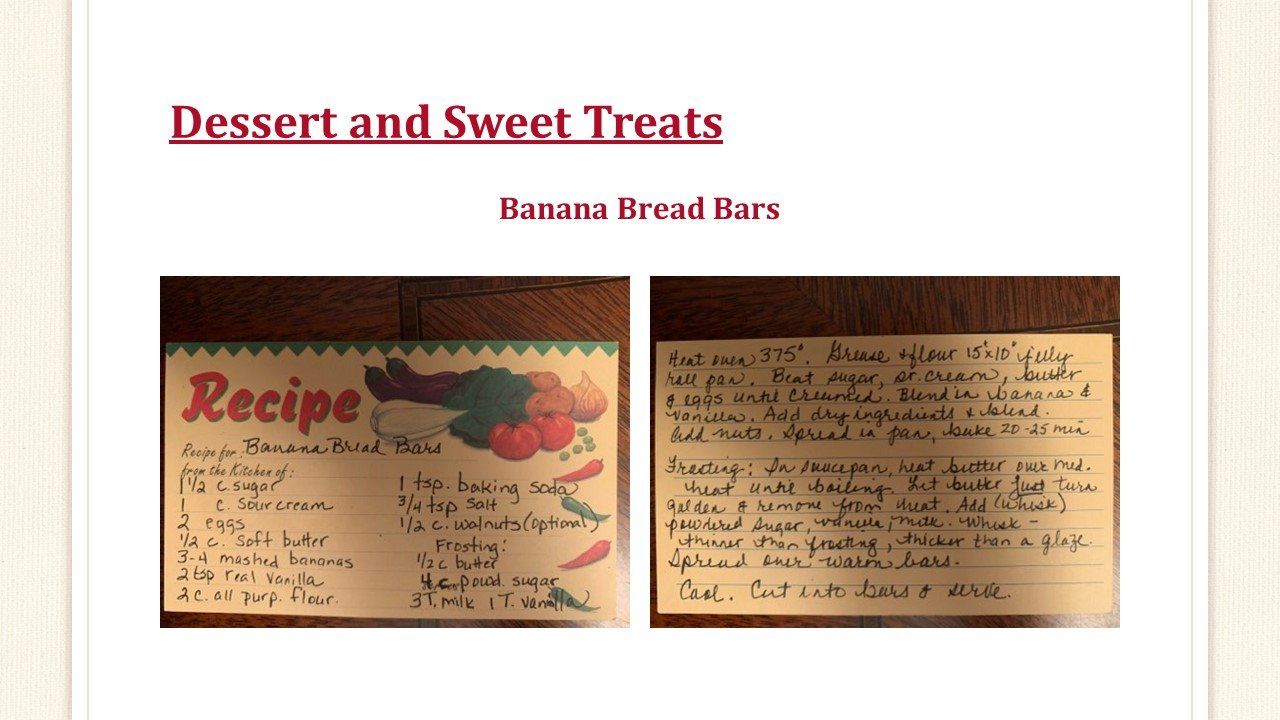 Dessert and Sweet Treats
Banana Bread Bars
Recipe
Recipe for: Banana Bread Bars
from the Kitchen of:
1 1/2 c. sugar
1 c. Sour cream
2 eggs
1/2 c. soft butter
3-4 mashed bananas
2 tsp real vanilla
2 c. all purp. flour.
1 tsp. baking soda
3/4 tsp salt
1/2 c. walnuts (optional)
Frosting:
1/2 c butter
4 c. powd. sugar
3 T. milk 1 T. vanilla
Heat oven 375°. Grease & flour 15"x10" jelly
roll pan. Beat sugar, sr. cream, butter
& eggs until creamed. Blend in banana &
vanilla. Add dry ingredients & blend.
Add nuts. Spread in pan, bake 20-25 min
Frosting: In saucepan, heat butter over med.
heat until boiling. Let butter just turn
golden & remove from heat. Add (whisk)
powdered sugar, vanilla, milk. Whisk -
thinner than frosting, thicker than a glaze.
Spread over warm bars.
Cool. Cut into bars & serve.